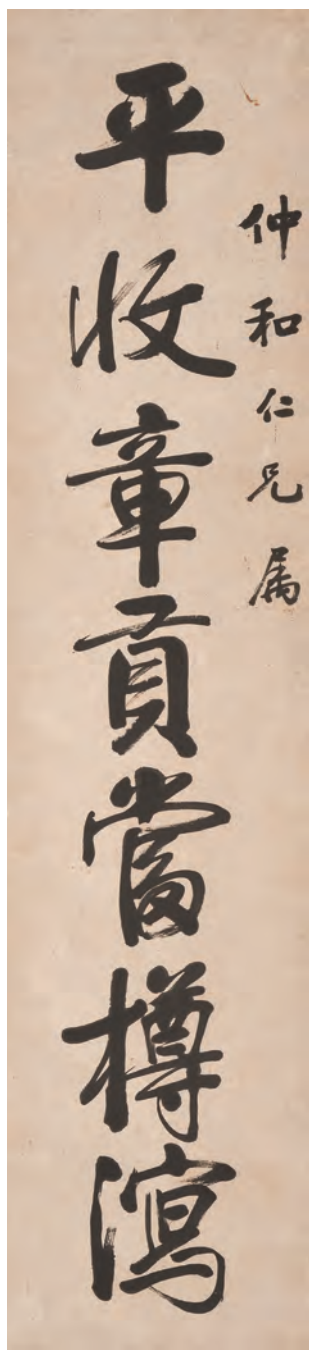 仲和仁兄属
平收章貢當樽瀉